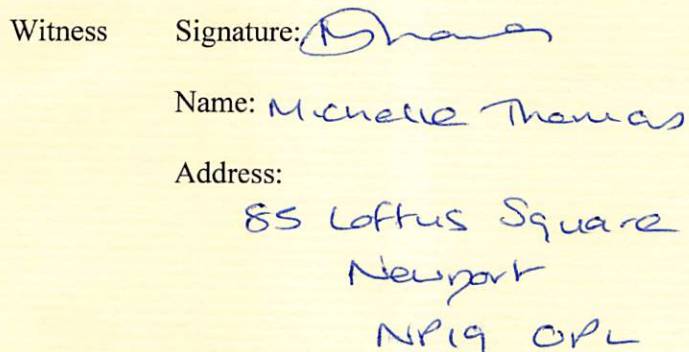 Witness Signature: MThomas
Name: Michelle Thomas
Address:
85 Loftus Square
Newport
NP19 0PL